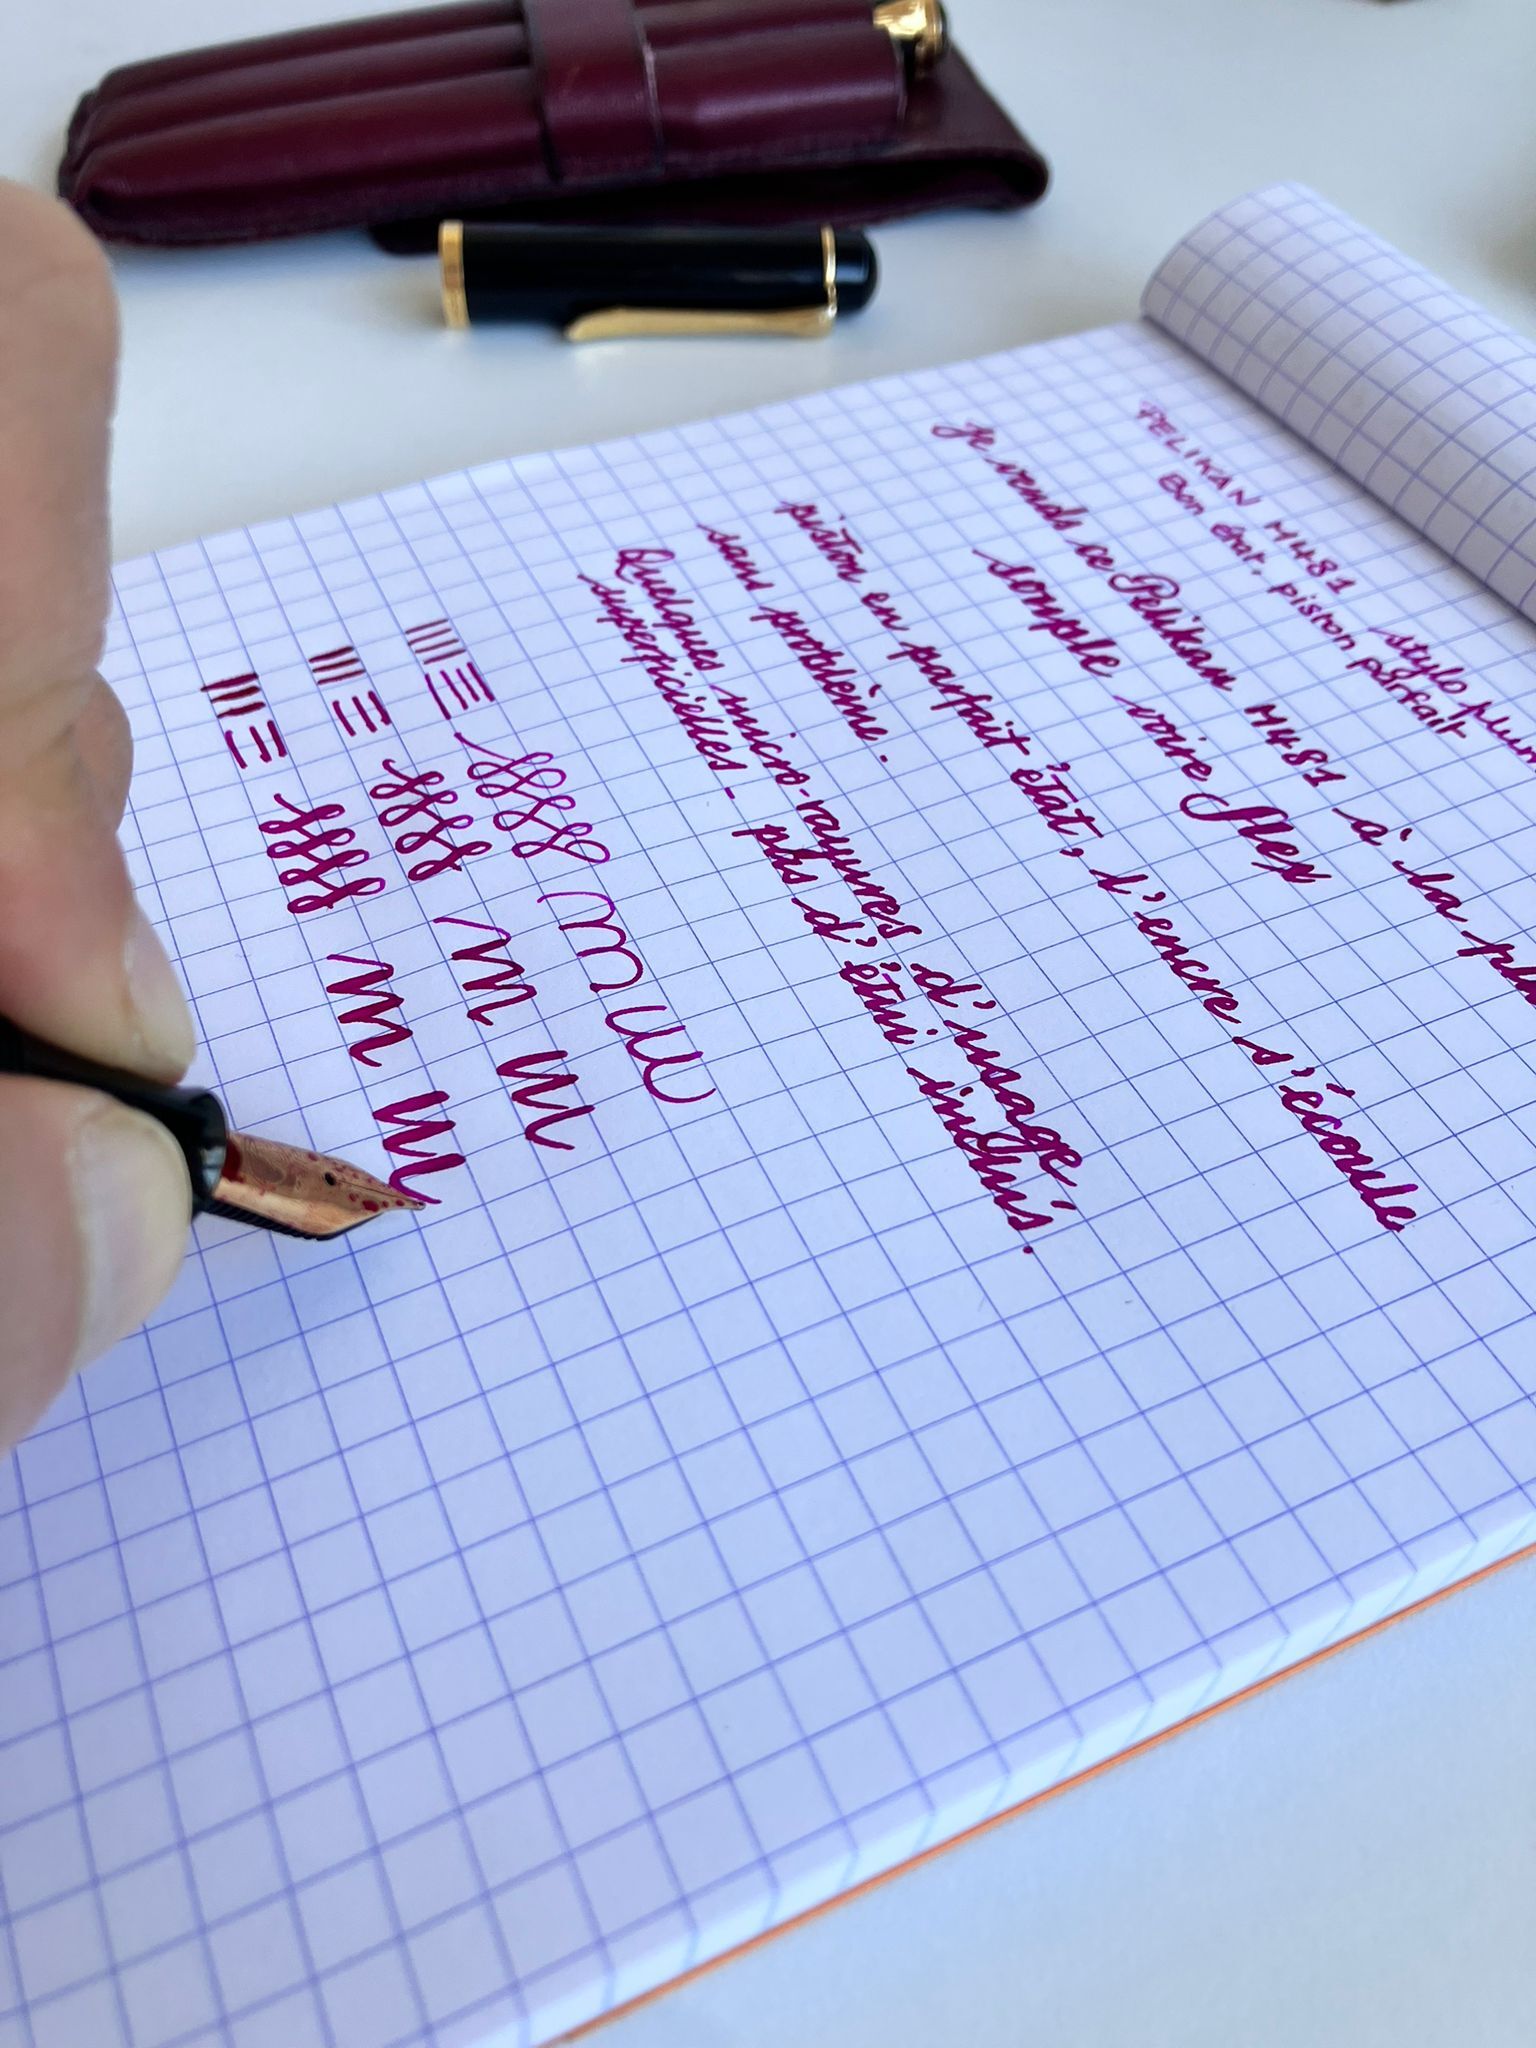 PELIKAN M481 stylo
Bon état. piston parfait
je vends ce Pelikan M481 à la
souple voire flex
piston en parfait état, l'encre s'écoule
sans problème.
Quelques micro-rayures d'usage
superficielles - pas d'étui inclus.
m u
m m
m m